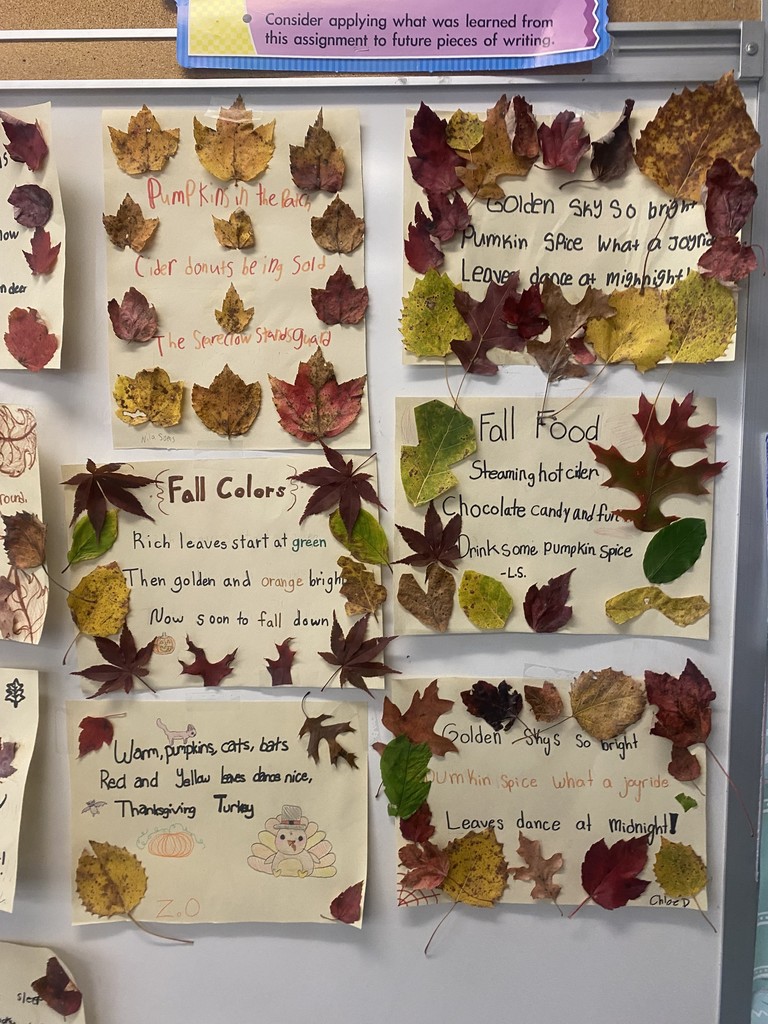 Consider applying what was learned from
this assignment to future pieces of writing.
Pumpkins in the Patch
Cider donuts being Sold
The Scarecrow Stands Guard
Nila Soms
Golden Sky So bright
Pumkin Spice What a Joyrid
Leaves dance at mighnight!
Fall Colors
Rich leaves start at green
Then golden and orange brigh
Now soon to fall down
Fall Food
Steaming hot cider
Chocolate candy and fun
Drink some pumpkin spice
-L.S.
Warm, pumpkins, cats, bats
Red and Yellow leaves dance nice,
Thanksgiving Turkey
Z.O
Golden Skys So bright
Pumkin Spice what a joyride
Leaves dance at Midnight!
Chloe D
low
n deer
round,
sleep